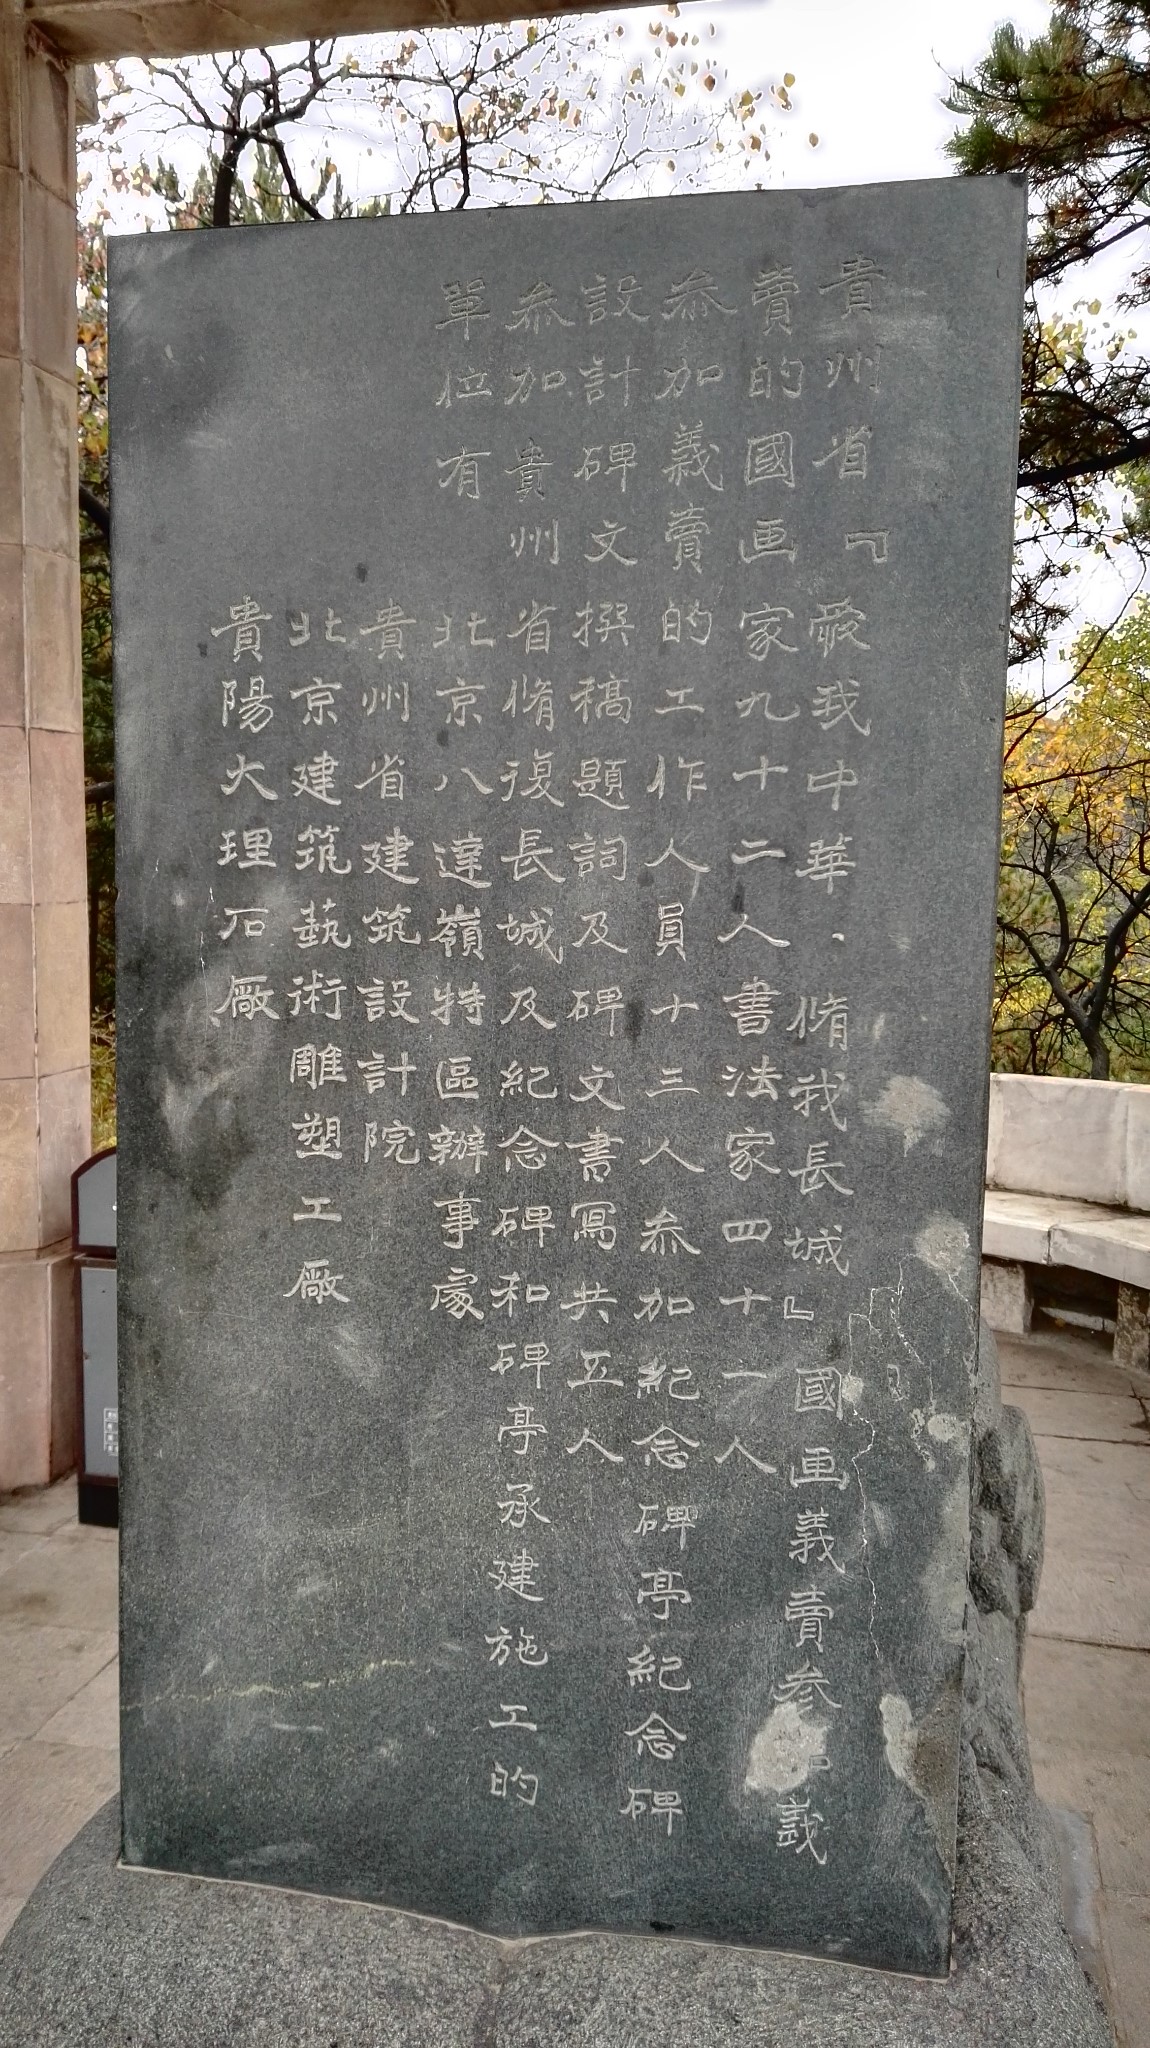 貴州省『愛我中華·脩我長城』國画義賣参加義
賣的國画家九十二人書法家四十一人
叅加義賣的工作人員十三人叅加紀念碑亭紀念碑
設計碑文撰稿題詞及碑文書寫共五人
叅加貴州省脩復長城及紀念碑和碑亭承建施工的
單位有北京八達嶺特區辦事處
貴州省建筑設計院
北京建筑藝術雕塑工廠
貴陽大理石廠